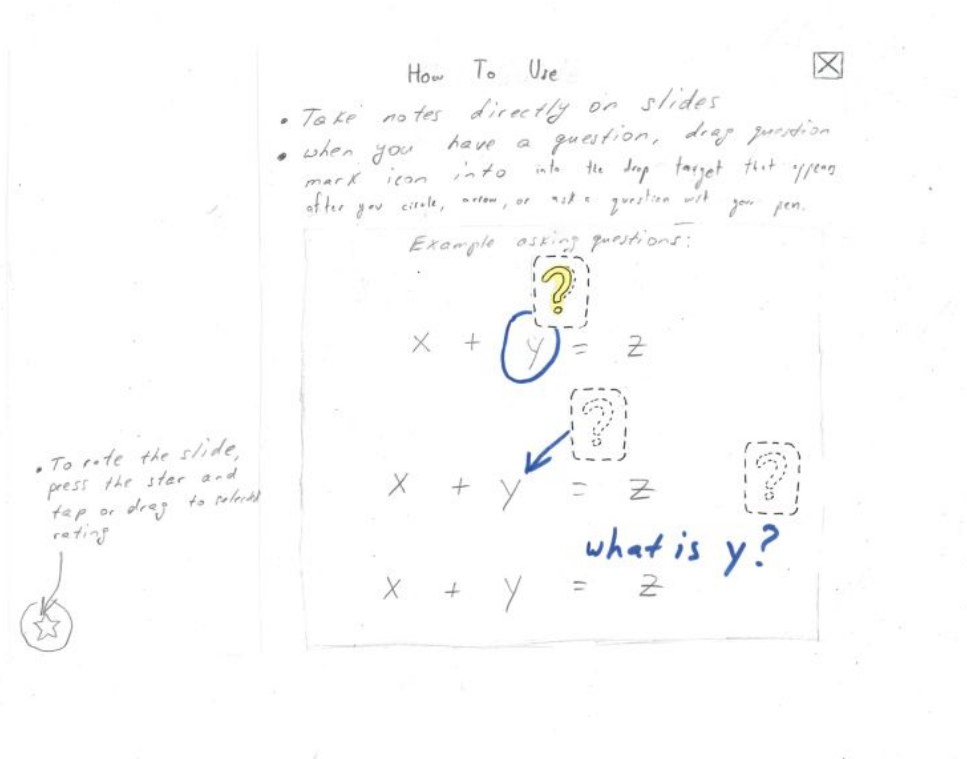 How To Use
• Take notes directly on slides
• when you have a question, drag question
mark icon into into the drop target that appears
after you circle, arrow, or ask a question with your pen.
Example asking questions:
?
x + y = z
?
x + y = z
?
what is y?
x + y = z
• To rate the slide,
press the star and
tap or drag to selected
rating